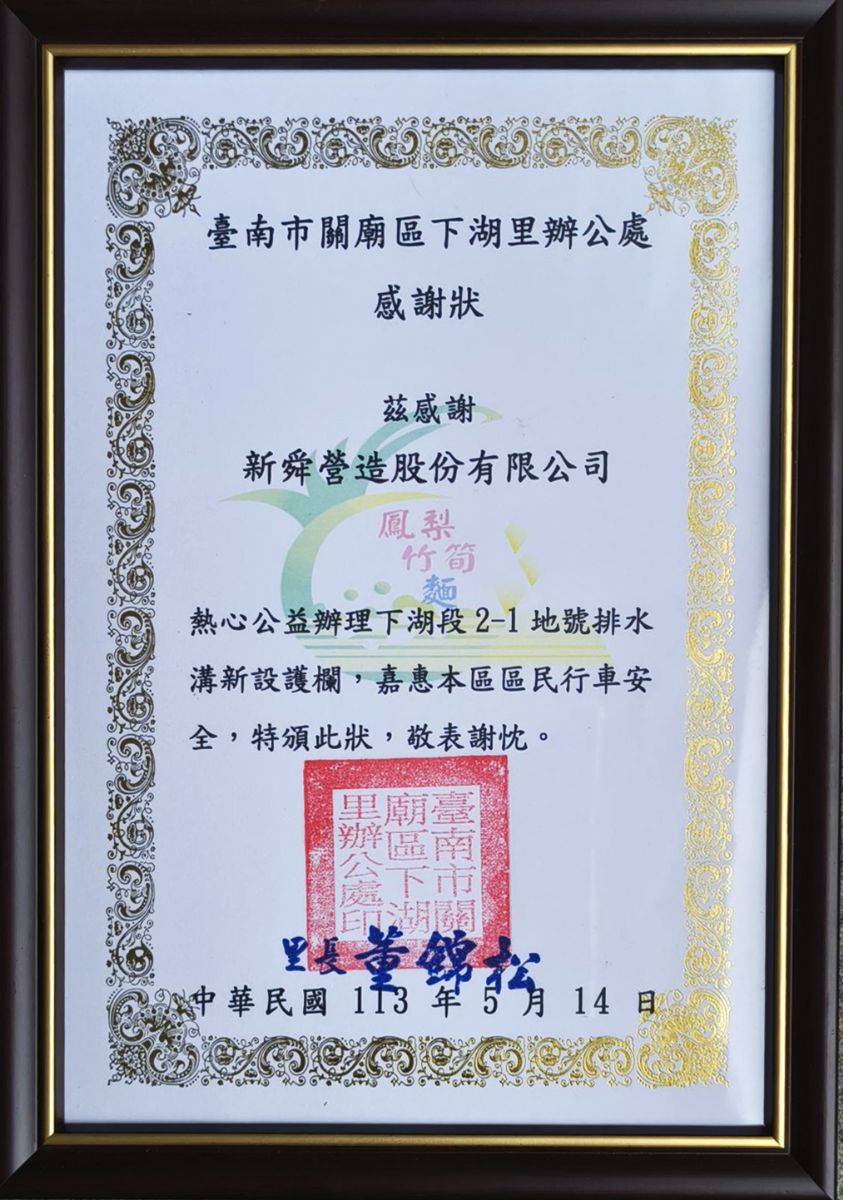 臺南市關廟區下湖里辦公處
感謝狀
茲感謝
新舜營造股份有限公司
鳳梨
竹筍
麵
熱心公益辦理下湖段2-1地號排水
溝新設護欄，嘉惠本區區民行車安
全，特頒此狀，敬表謝忱。
臺南市關
廟區下湖
里辦公處印
里長董錦松
中華民國 113 年 5 月 14 日